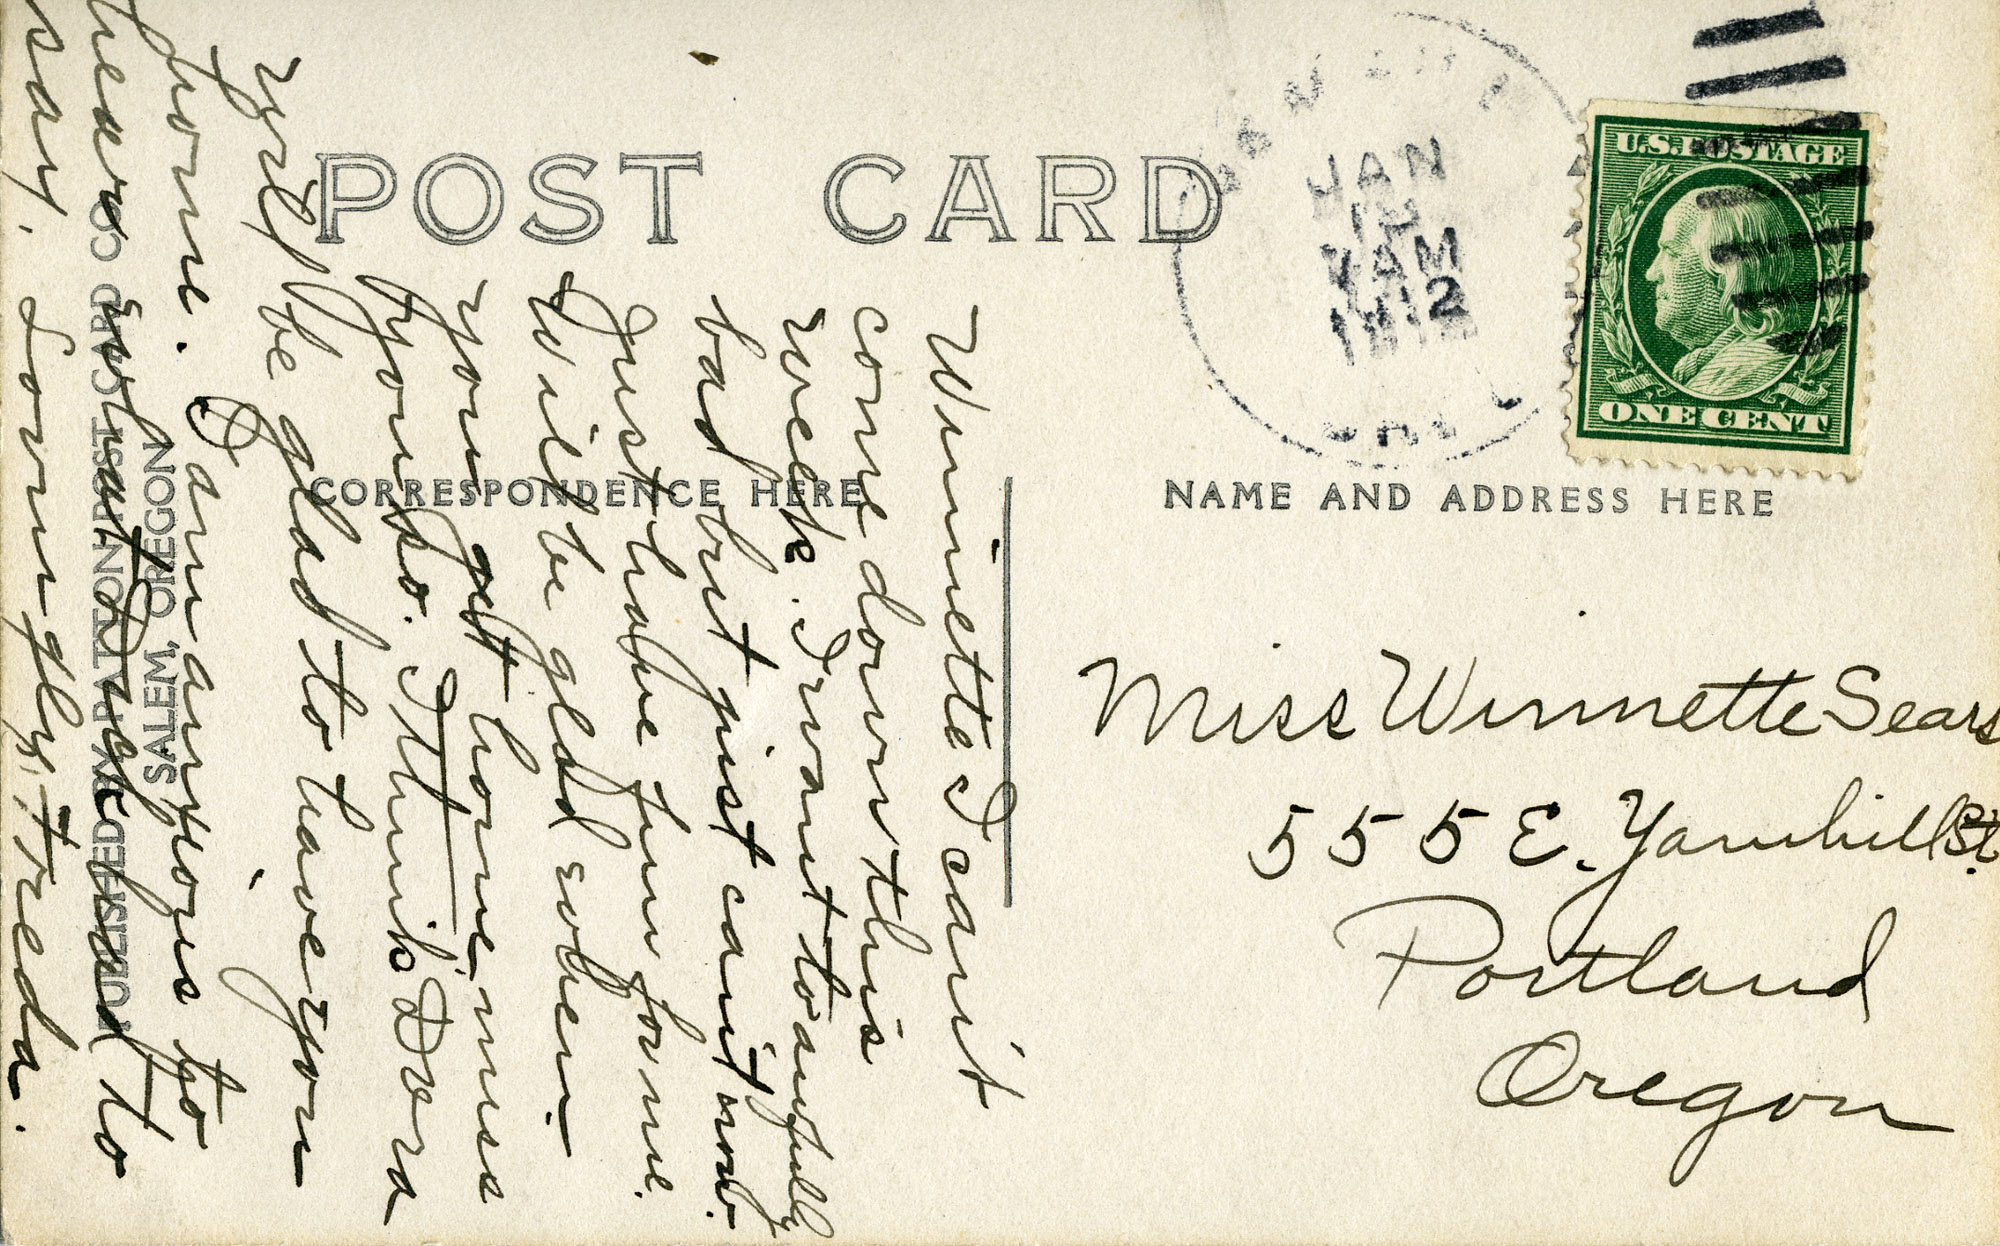 POST CARD
CORRESPONDENCE HERE
NAME AND ADDRESS HERE
U.S. POSTAGE
ONE CENT
JAN
AM
1912
Winnette I can't
come down this
week. I want to awfully
bad but just can't now.
Just have fun for me.
Will be glad when
you get home, miss
you so. I think Dora
will be glad to have you
home. I am anxious to
hear what Duel had to
say. Lovingly, Freda.
PUBLISHED PATTON POST CARD CO
SALEM, OREGON
Miss Winnette Sears
555 E. Yamhill St.
Portland
Oregon